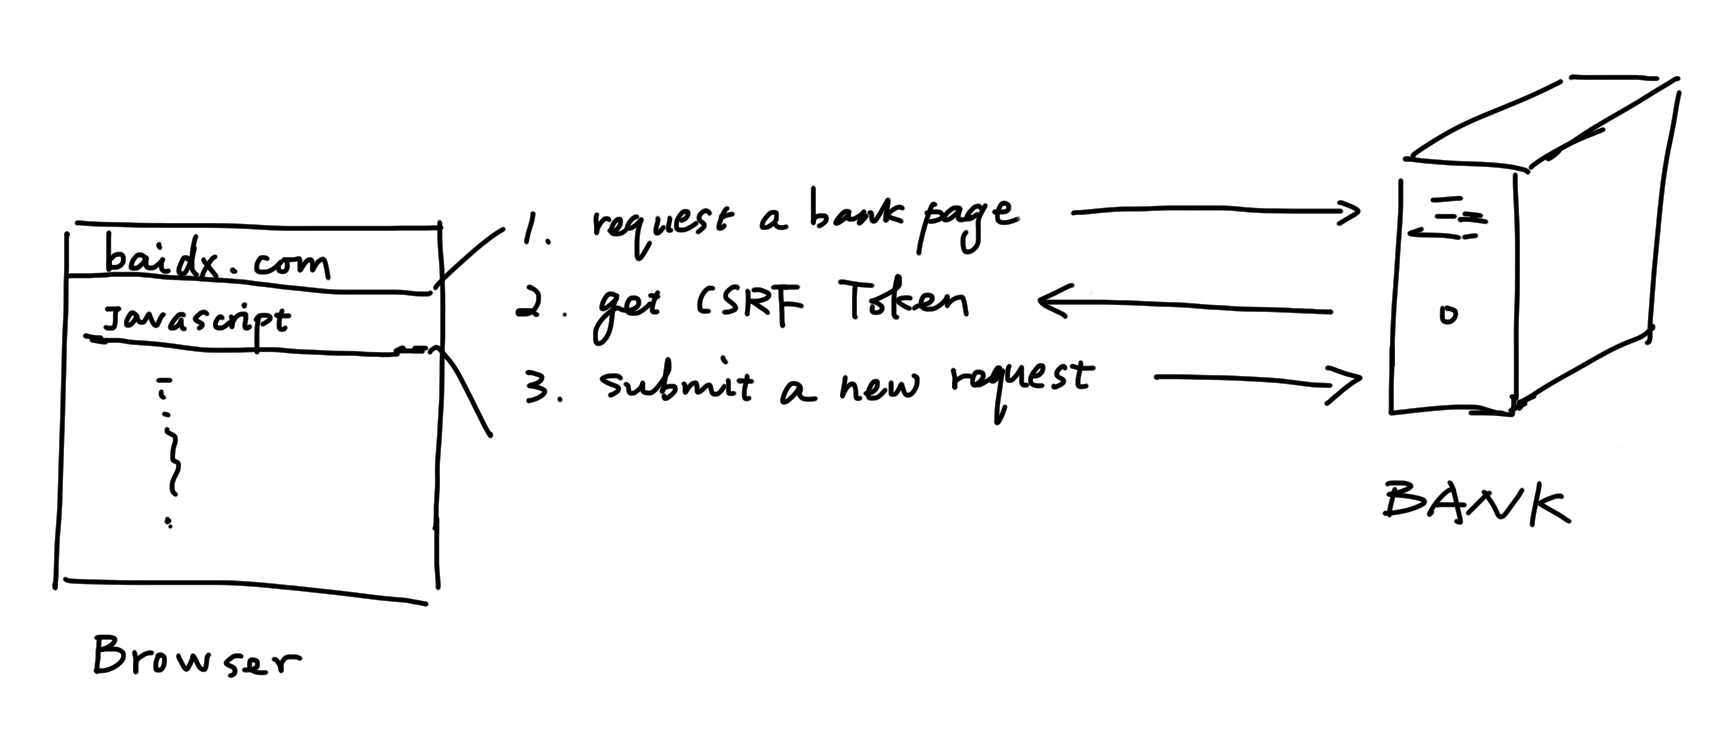 baidx.com
Javascript
1. request a bank page
2. get CSRF Token
3. submit a new request
BANK
Browser